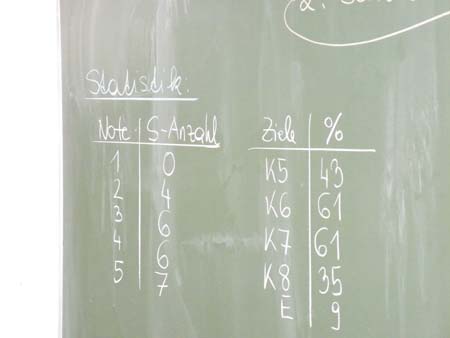 Statistik:
Note S-Anzahl
1 0
2 4
3 6
4 6
5 7
Ziele %
K5 43
K6 61
K7 61
K8 35
E 9